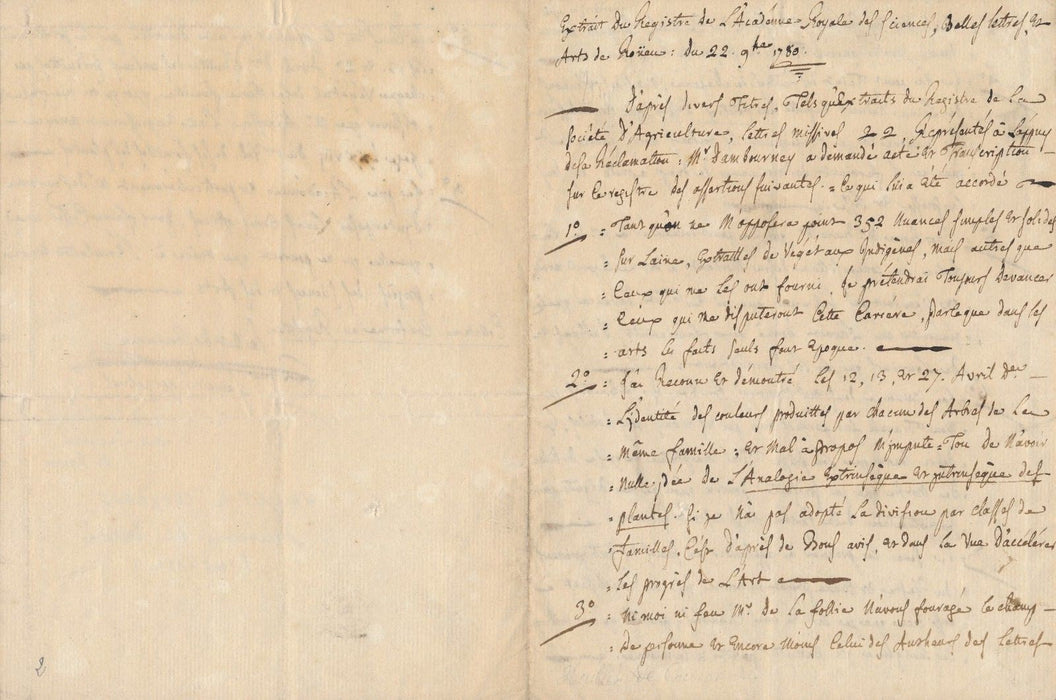 Extrait Du Registre de L'académie Royale des Sciences, Belles lettres, et
Arts de Roüen : Du 22. 9bre 1780.
D'après divers Titres, Tels qu'Extraits du Registre de La
Société D'Agriculture, Lettres missives 22, Représentés à L'appuy
de sa Réclamation : Mr. Dambourney a demandé acte et Transcription
sur le registre des assertions suivantes. = Ce qui lui a été accordé
1º = Tant qu'on ne M'opposera point 352 Nuances simples et solides
= sur Laine, Extraittes de Végétaux Indigènes, mais autres que
= Ceux qui me les ont fourni, je prétendrai Toujours Devancer
= Ceux qui me disputeront Cette Carrière, parceque dans les
= arts les faits seuls font Epoque.
2º = J'ai Reconu et démontré les 12, 13, et 27. Avril der
= L'ydentité des couleurs produittes par chacun des Arbres de La
= même famille ; et Mal à propos M'impute=Ton de N'avoir
= Nulle jdée de L'Analogie Extrinsèque et jntrinsèque des
= plantes. Si je N'ai pas adopté La division par classes de
= familles, C'est D'après de Bons avis, et dans la Vue D'accélérer
= Les progrès de L'Art
3º = Ni moi ni feu Mr. De La follie N'avons fouragé le champ
= De personne et Encore Moins Celui des Autheurs des Lettres
2